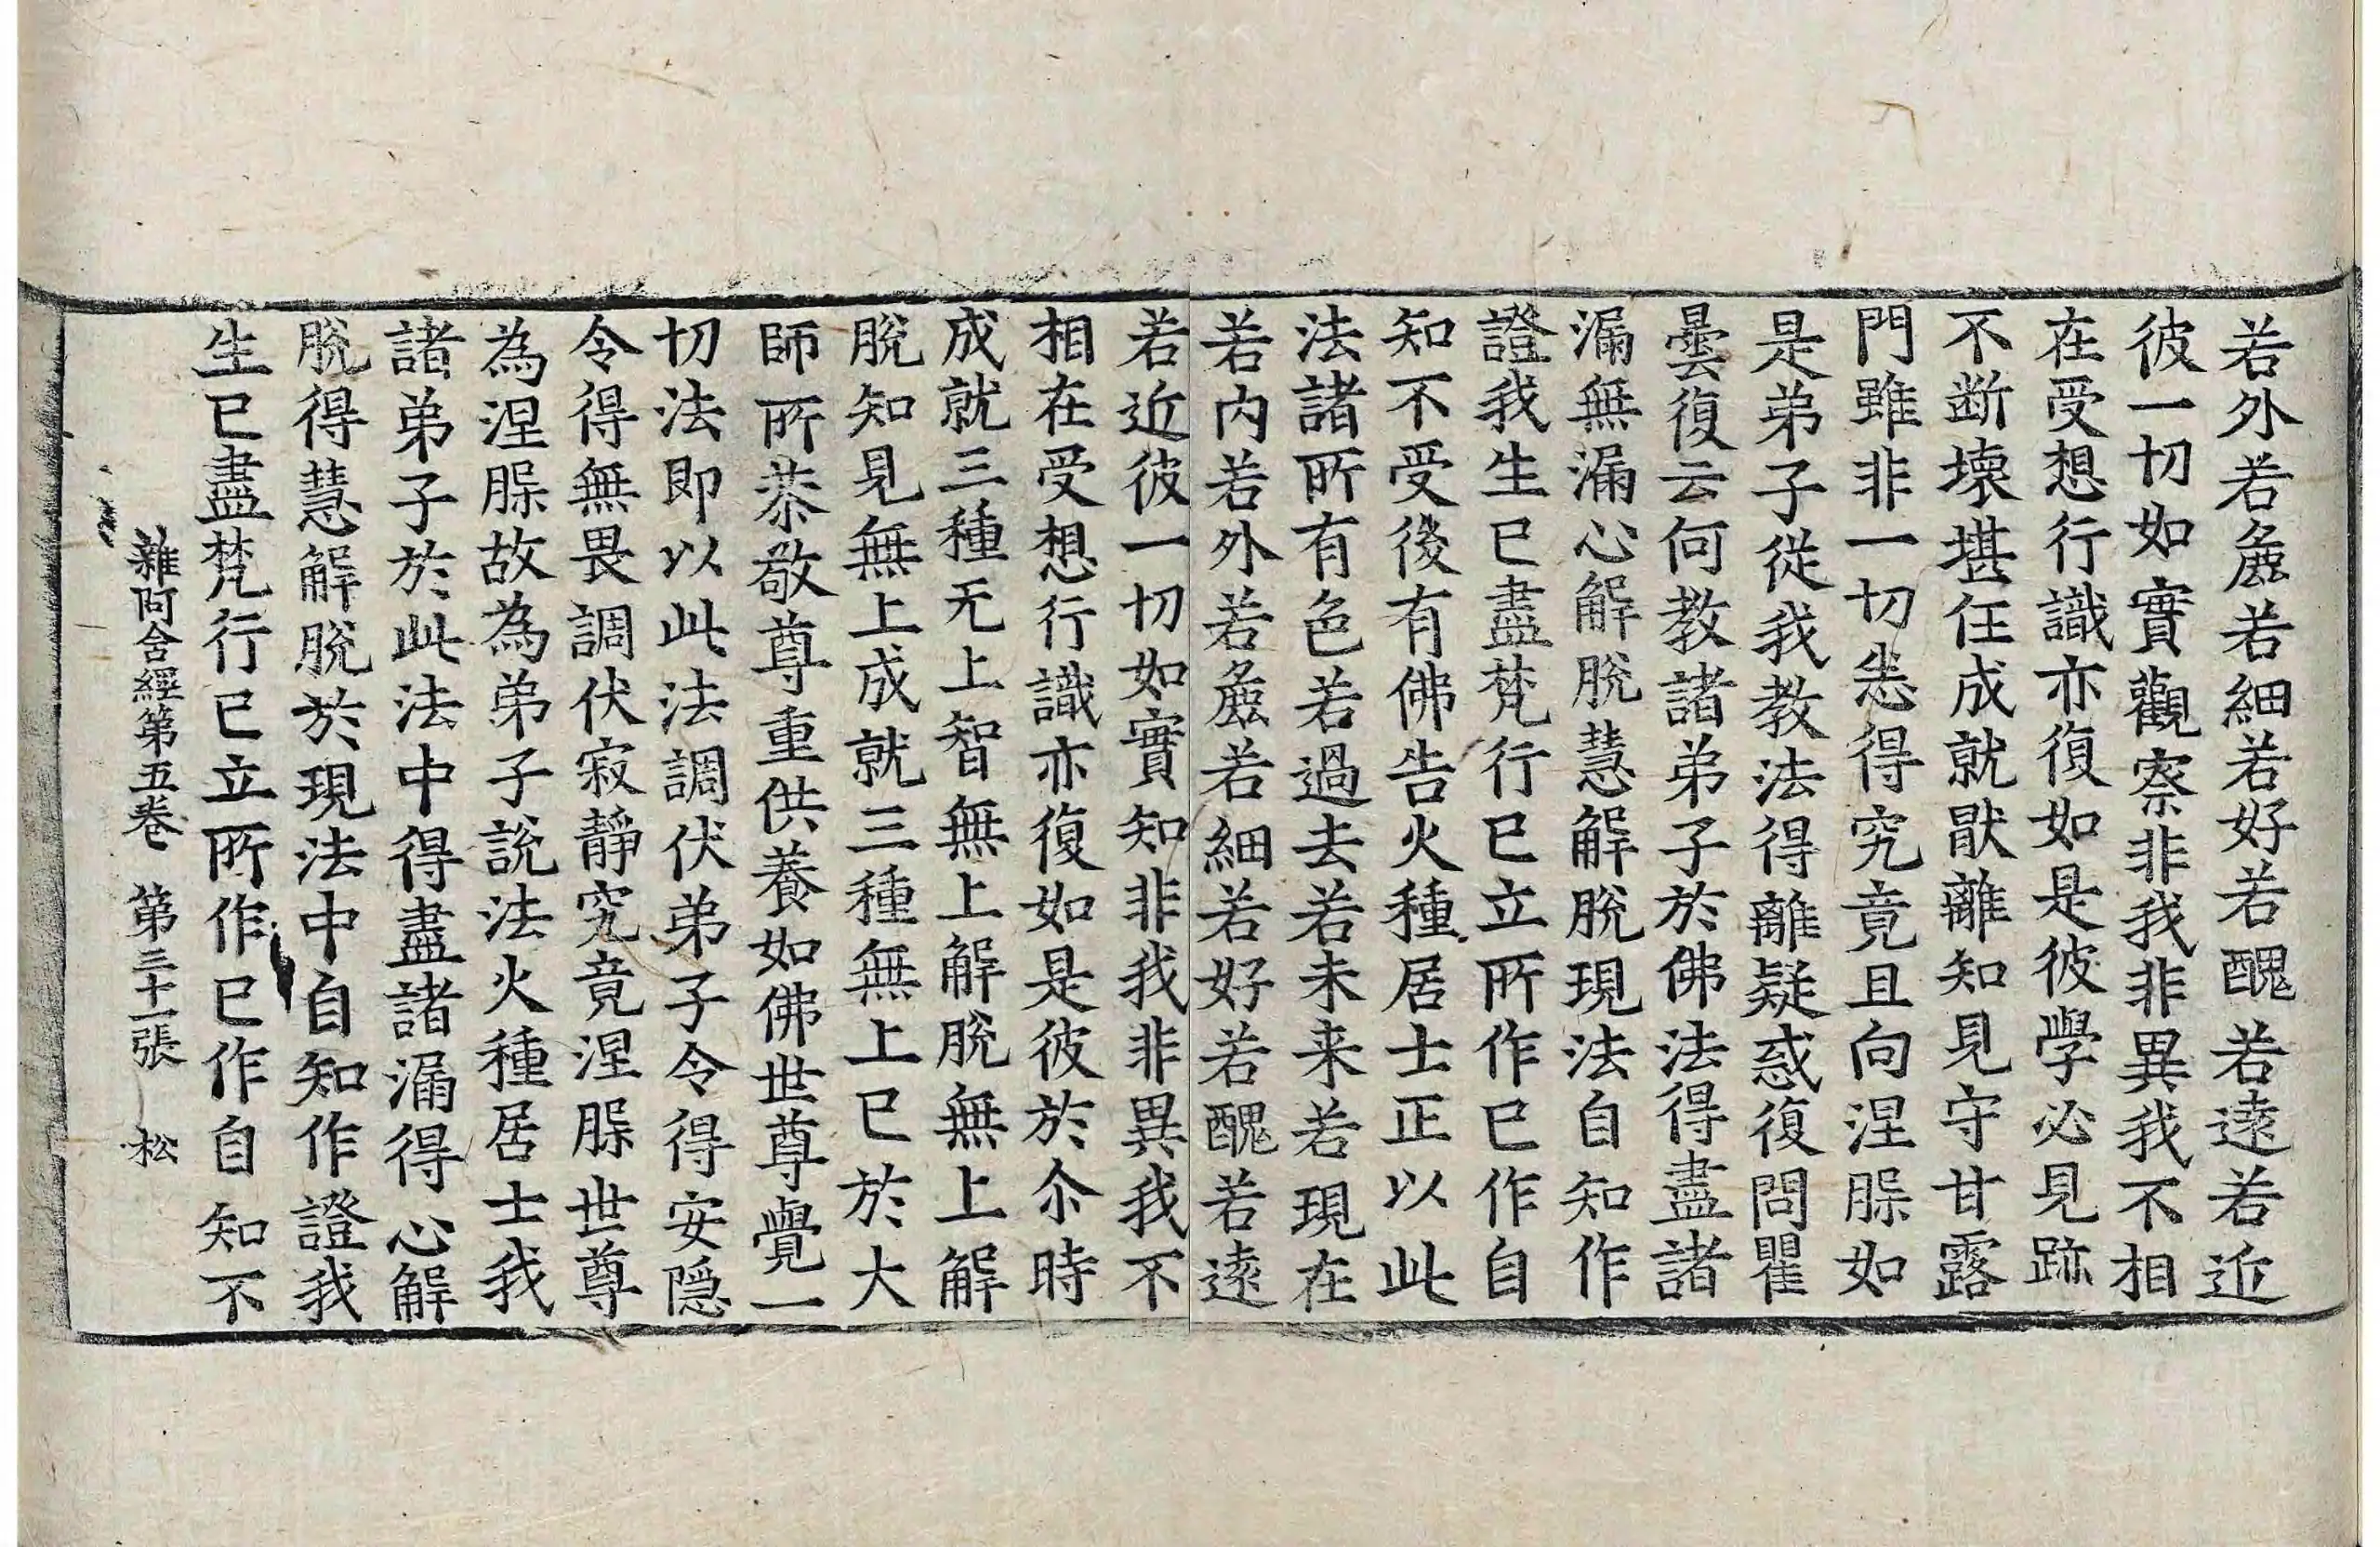 若外若麁若細若好若醜若遠若近
彼一切如實觀察非我非異我不相
在受想行識亦復如是彼學必見跡
不断壞堪任成就猒離知見守甘露
門雖非一切悉得究竟且向涅槃如
是弟子從我教法得離疑惑復問瞿
曇復云何教諸弟子於佛法得盡諸
漏無漏心解脫慧解脫現法自知作
證我生已盡梵行已立所作已作自
知不受後有佛告火種居士正以此
法諸所有色若過去若未来若現在
若內若外若麁若細若好若醜若遠
若近彼一切如實知非我非異我不
相在受想行識亦復如是彼於尒時
成就三種无上智無上解脫無上解
脫知見無上成就三種無上已於大
師所恭敬尊重供養如佛世尊覺一
切法即以此法調伏弟子令得安隱
令得無畏調伏寂靜究竟涅槃世尊
為涅槃故為弟子說法火種居士我
諸弟子於此法中得盡諸漏得心解
脫得慧解脫於現法中自知作證我
生已盡梵行已立所作已作自知不
雜阿含經第五卷 第三十一張 松